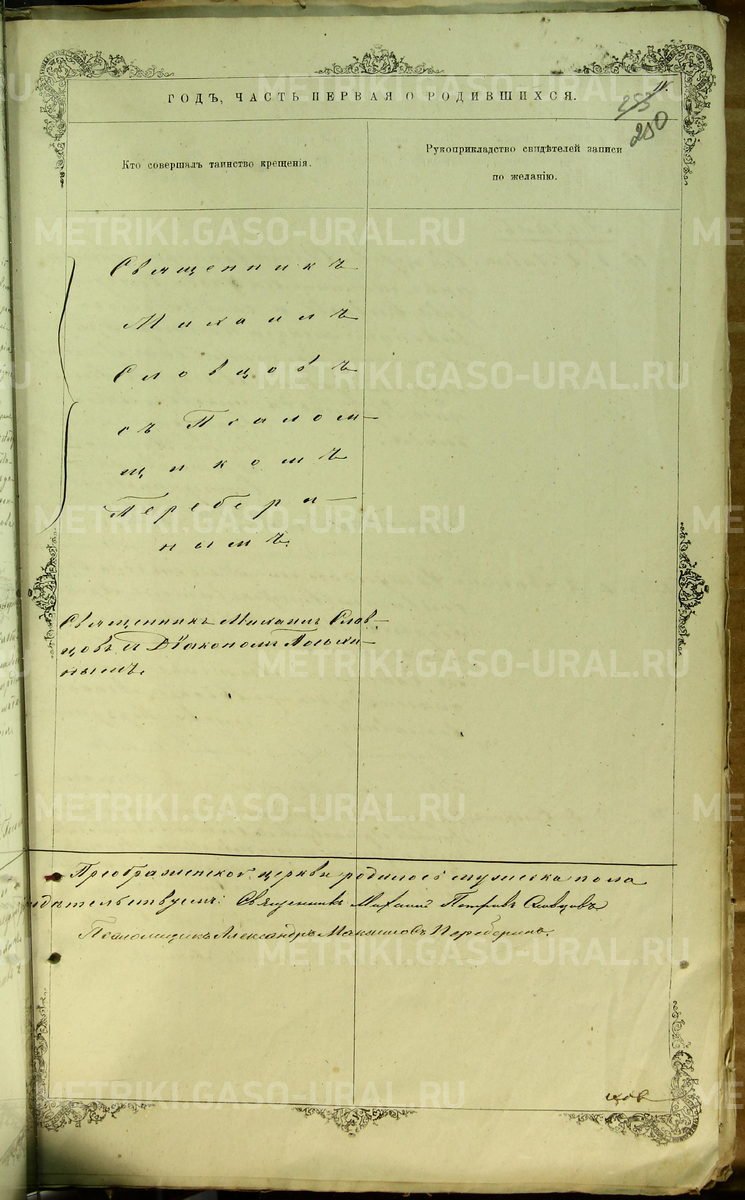 ГОДЪ, ЧАСТЬ ПЕРВАЯ О РОДИВШИХСЯ.
11.
253
250
Кто совершалъ таинство крещенія.
Рукоприкладство свидѣтелей записи
по желанію.
Священникъ
Михаилъ
Словцовъ
съ Псалом-
щикомъ
Перебери-
нымъ.
Священникъ Михаилъ Слов-
цовъ и Діаконом
нымъ.
Преображенской церкви родилось мужеска пола
идѣтельствуемъ: Священникъ Михаилъ Петровъ Словцовъ
Псаломщикъ Александръ Максимовъ Переберинъ.
цов
METRIKI.GASO-URAL.RU